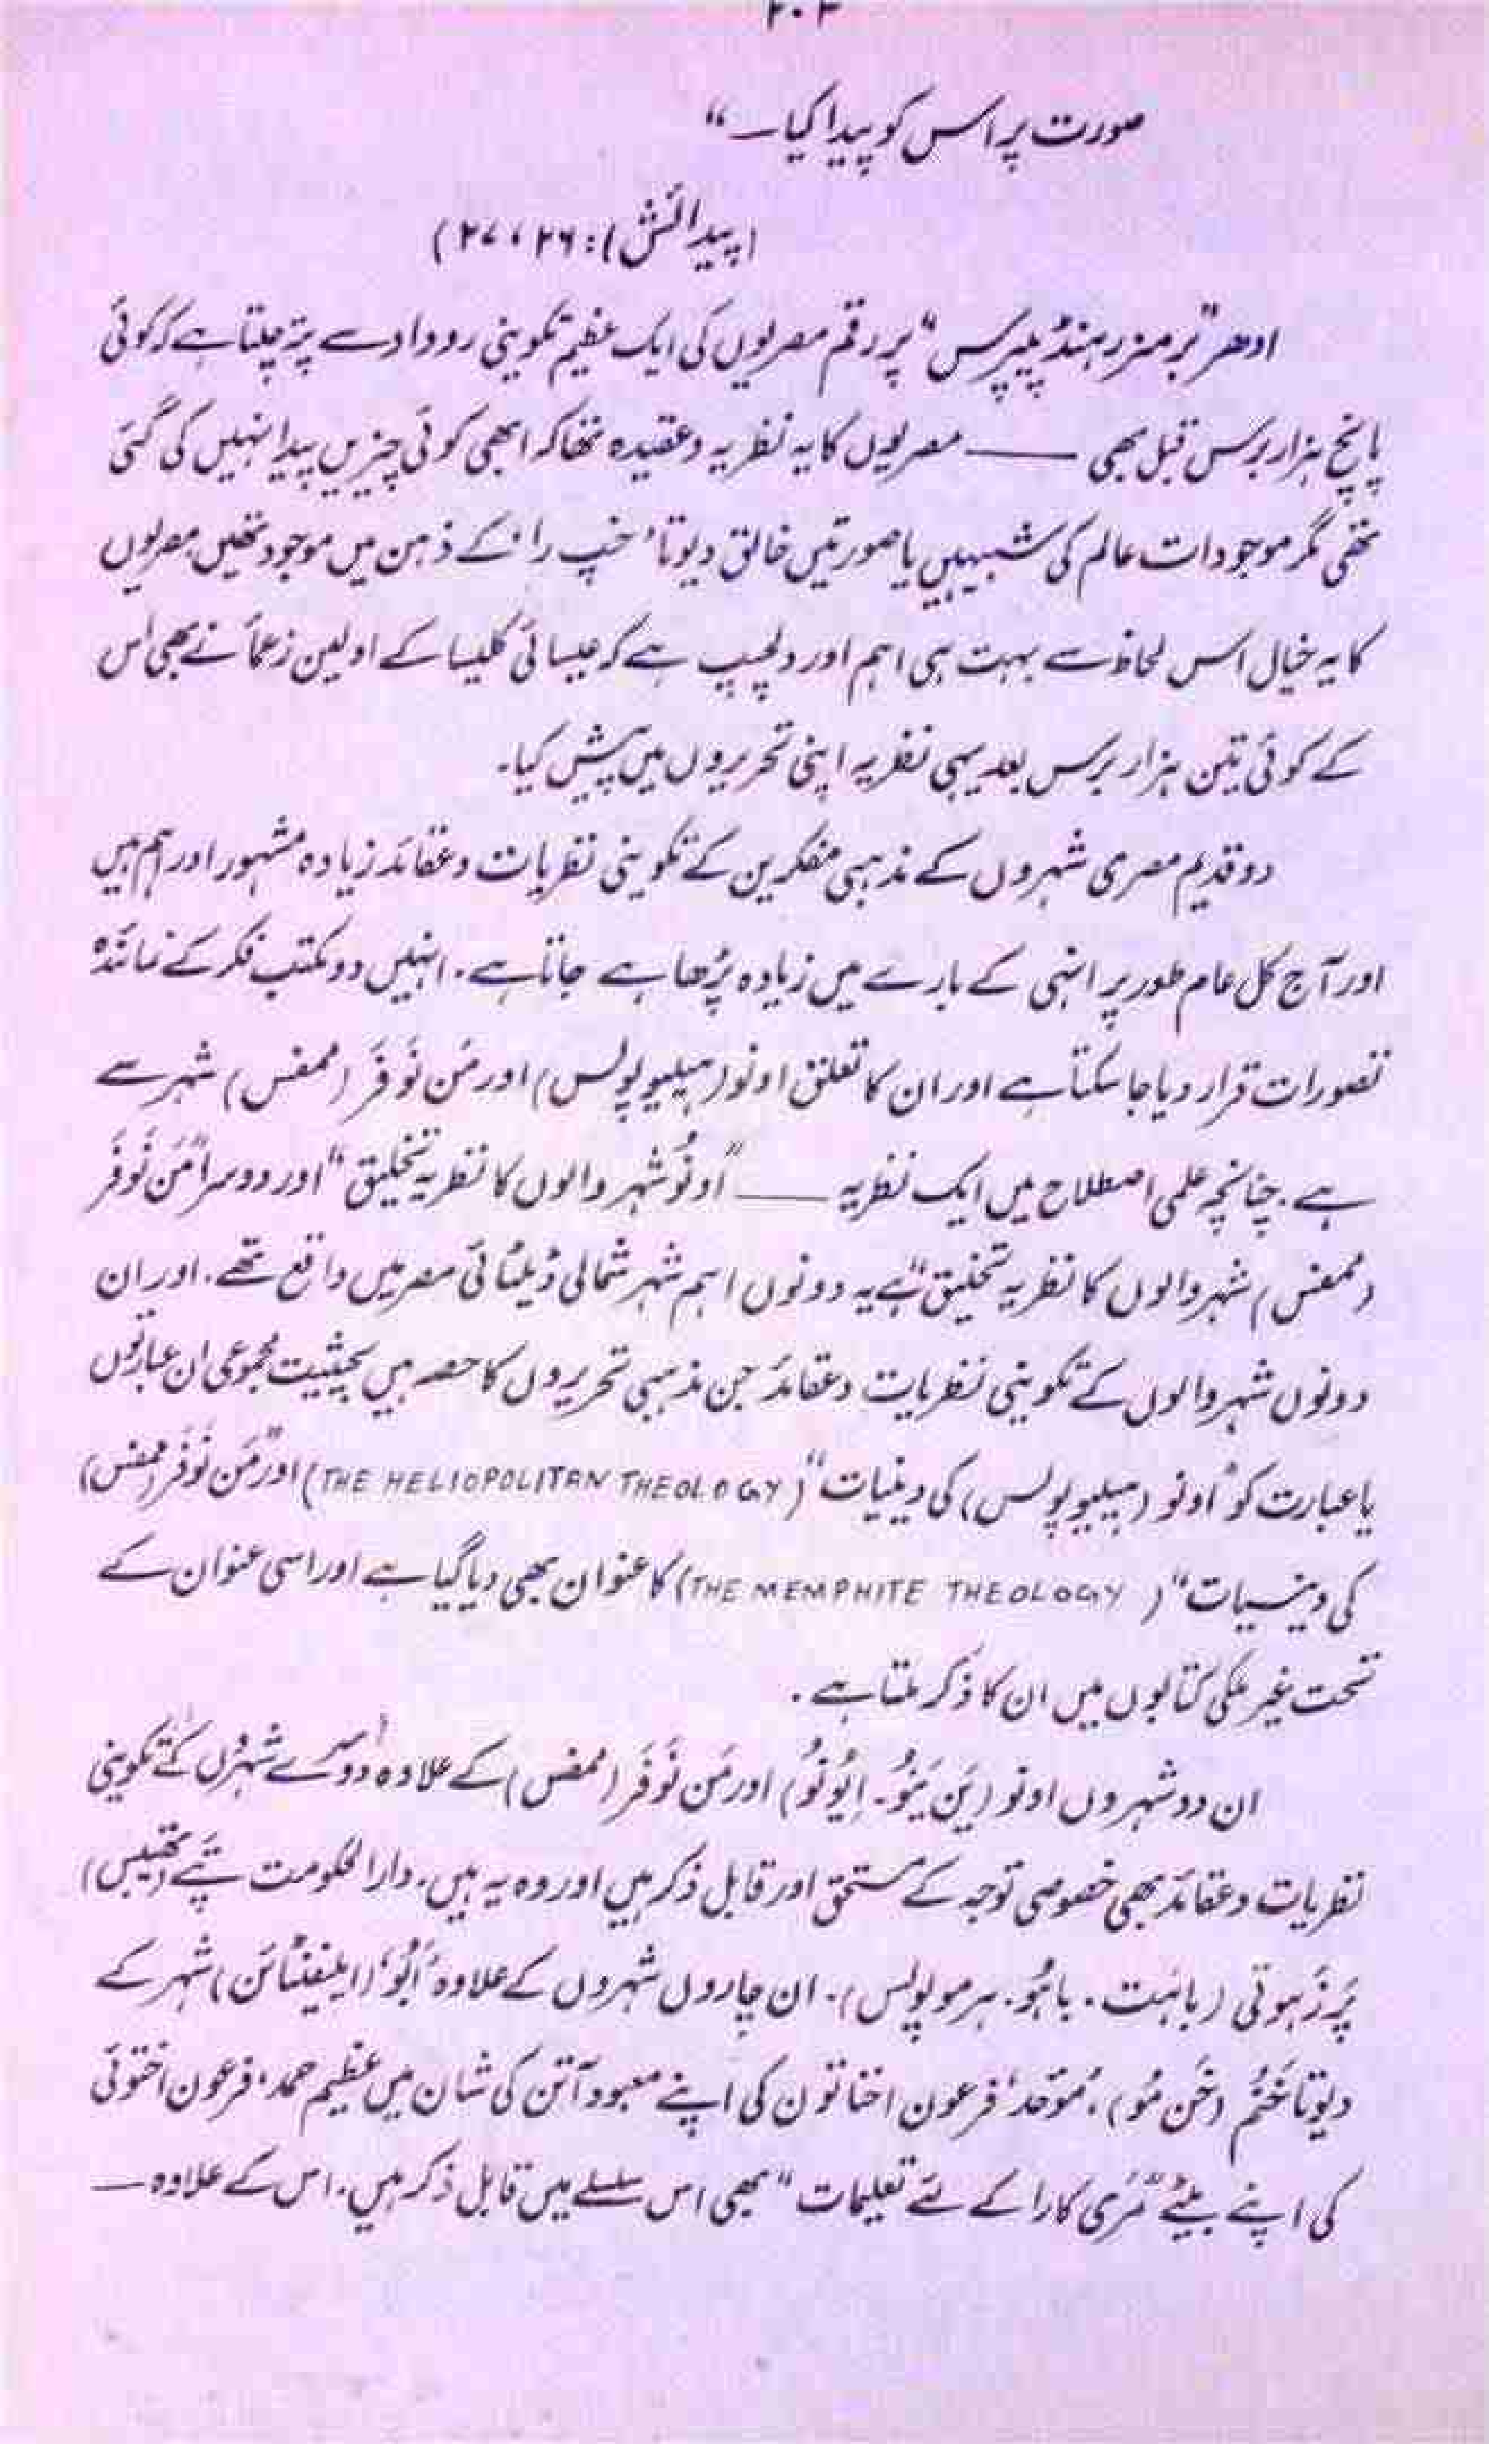 ۲۰۳
صورت پر اس کو پیدا کیا۔“
(پیدائش ۱: ۲۶، ۲۷)
ادھر ”برمنر رہنڈ پیپرس“ پر رقم مصریوں کی ایک عظیم تکوینی روداد سے پتہ چلتا ہے کہ کوئی
پانچ ہزار برس قبل بھی ــــــ مصریوں کا یہ نظریہ و عقیدہ تھا کہ ابھی کوئی چیزیں پیدا نہیں کی گئی
تھی مگر موجودات عالم کی شبیہیں یا صورتیں خالق دیوتا ’خپ را‘ کے ذہن میں موجود تھیں مصریوں
کا یہ خیال اس لحاظ سے بہت ہی اہم اور دلچسپ ہے کہ عیسائی کلیسا کے اولین زعمأ نے بھی اس
کے کوئی تین ہزار برس بعد یہی نظریہ اپنی تحریروں میں پیش کیا۔
دو قدیم مصری شہروں کے مذہبی مفکرین کے تکوینی نظریات و عقائد زیادہ مشہور اور اہم ہیں
اور آج کل عام طور پر انہی کے بارے میں زیادہ پڑھا ہے جاتا ہے۔ انہیں دو مکتب فکر کے نمائندہ
تصورات قرار دیا جا سکتا ہے اور ان کا تعلق اونو (ہیلیوپولس) اور مَن نَوفَر (ممفس) شہر سے
ہے۔ چنانچہ علمی اصطلاح میں ایک نظریہ ــــــ ”اونُو شہر والوں کا نظریہ تخلیق“ اور دوسرا ”مَن نَوفَر
(ممفس) شہر والوں کا نظریہ تخلیق“ ہے یہ دونوں اہم شہر شمالی ڈیلٹائی مصر میں واقع تھے۔ اور ان
دونوں شہر والوں کے تکوینی نظریات و عقائد جن مذہبی تحریروں کا حصہ ہیں بحیثیت مجموعی ان عبارتوں
یا عبارت کو ”اونو (ہیلیوپولس) کی دینیات“ (THE HELIOPOLITAN THEOLOGY) اور ”مَن نَوفَر (ممفس)
کی دینیات“ (THE MEMPHITE THEOLOGY) کا عنوان بھی دیا گیا ہے اور اسی عنوان کے
تحت غیر ملکی کتابوں میں ان کا ذکر ملتا ہے۔
ان دو شہروں اونو (یَن یَنُو۔ اِیُونُو) اور مَن نَوفَر (ممفس) کے علاوہ دوسرے شہروں کے تکوینی
نظریات و عقائد بھی خصوصی توجہ کے مستحق اور قابل ذکر ہیں اور وہ یہ ہیں۔ دارالحکومت تپے (تھیبس)
پَرزَہوتی (باہَت۔ باہُو۔ ہرموپولس)۔ ان چاروں شہروں کے علاوہ ’اَبُو‘ (ایلیفنٹائن) شہر کے
دیوتا خَنُم (خَن مُو)، ’مُوَحد‘ فرعون اخناتون کی اپنے معبود آتن کی شان میں عظیم حمد، فرعون اختوئی
کی اپنے بیٹے ”مَری کارا کے لئے تعلیمات“ بھی اس سلسلے میں قابل ذکر ہیں۔ اس کے علاوہ ـــ